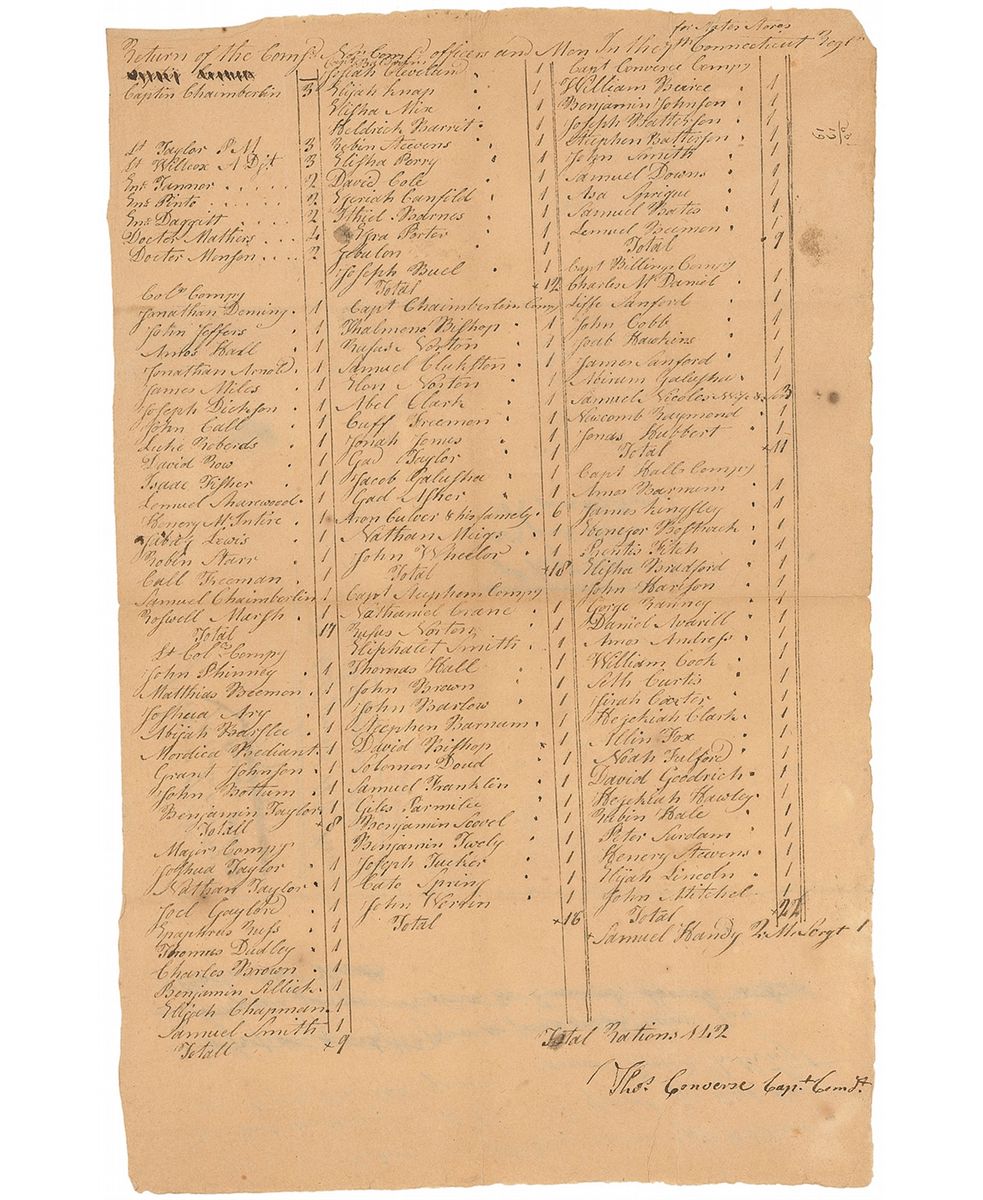 for Nates Acros
Return of the Comsd. Non Comsd. officers and Men In the 7th Connecticut Regt
Captin Chaimberlin 3
Lt Taylor P M 3
Lt Willcox A Djt 3
Ens Tannor 2
Ens Pinto 2
Ens Daggitt 2
Docter Mathers 4
Docter Monson 2
Colo Compy
Jonathan Deming 1
John Jeffers 1
Amos Hall 1
Jonathan Arnold 1
James Miles 1
Joseph Dickson 1
John Call 1
Luke Roberds 1
David Row 1
Isaac Fisher 1
Lemuel Sharewood 1
Henery McIntire 1
Lewis 1
Robin Starr 1
Call Freeman 1
Samuel Chaimberlin 1
Roswell Marsh 1
Total 17
Lt Colo Compy
John Phinney 1
Matthias Beemon 1
Joshua Ary 1
Abijah Barslee 1
Mordica Bediant 1
Grant Johnson 1
John Bottum 1
Benjamin Taylor 1
Totall 8
Majors Compy
Joshua Taylor 1
Nathan Taylor 1
Joel Gaylord 1
Epaphras Buss 1
Thomas Dudley 1
Charles Brown 1
Benjamin Allich 1
Elijah Chapman 1
Samuel Smith 1
Totall 9
Josiah Cleveland 1
Elijah Knap 1
Elisha Mix 1
Heldrick Barrit 1
Robin Stevens 1
Elisha Perry 1
David Cole 1
Ezeriah Canfeld 1
Ithiel Barnes 1
Ezra Porter 1
Zebulon 1
Joseph Buel 1
Total 12
Capt Chaimberlin Comp
Thalmeno Bishop 1
Rufus Norton 1
Samuel Clukston 1
Elon Norton 1
Abel Clark 1
Cuff Freemon 1
Jonah Jonus 1
Gad Taylor 1
Jacob Galusha 1
Gad Usher 1
Aron Culver & his famely 6
Nathan Meigs 1
John Wheelor 1
Total 18
Capt Steephens Compy
Nathaniel Crane 1
Rufus Norton 1
Eliphalet Smith 1
Thomas Hall 1
John Brown 1
John Barlow 1
Steephen Barnum 1
David Bishop 1
Solomon Doud 1
Samuel Franklin 1
Giles Parmilee 1
Benjamin Scovel 1
Benjamin Twely 1
Joseph Tucker 1
Cato Spring 1
John Verren 1
Total 16
Capt Converce Compy
William Peirce 1
Benjamin Johnson 1
Joseph Patterson 1
Steephen Patterson 1
John Smith 1
Samuel Downs 1
Asa Sprigue 1
Samuel Bates 1
Lemuel Beemon 1
Total 9
Capt Billings Compy
Charles McDaniel 1
Liffe Sanford 1
John Cobb 1
Joab Hawkins 1
James Sanford 1
Noirum Galusha 1
Samuel Nicoles Wife & 3
Newcomb Raymond 1
Jonas Hubbert 1
Total 11
Capt Halls Compy
Amos Barnum 1
James Kingsley 1
Ebenezor Bostwick 1
Prentis Fitch 1
Elisha Bradford 1
John Harison 1
Gorge Ranney 1
Daniel Avarill 1
Amos Andress 1
William Cook 1
Seth Curtis 1
Jirah Carter 1
Hezekiah Clark 1
Allin Fox 1
Noah Fulford 1
David Goodrich 1
Hezekiah Hawley 1
Rubin Hale 1
Peter Surdam 1
Henery Stevens 1
Elijah Lincoln 1
John Mitchel 1
Total 22
Samuel Handy Q. M. Sergt 1
Total Rations 142
Thos Converse Capt. Comdt.